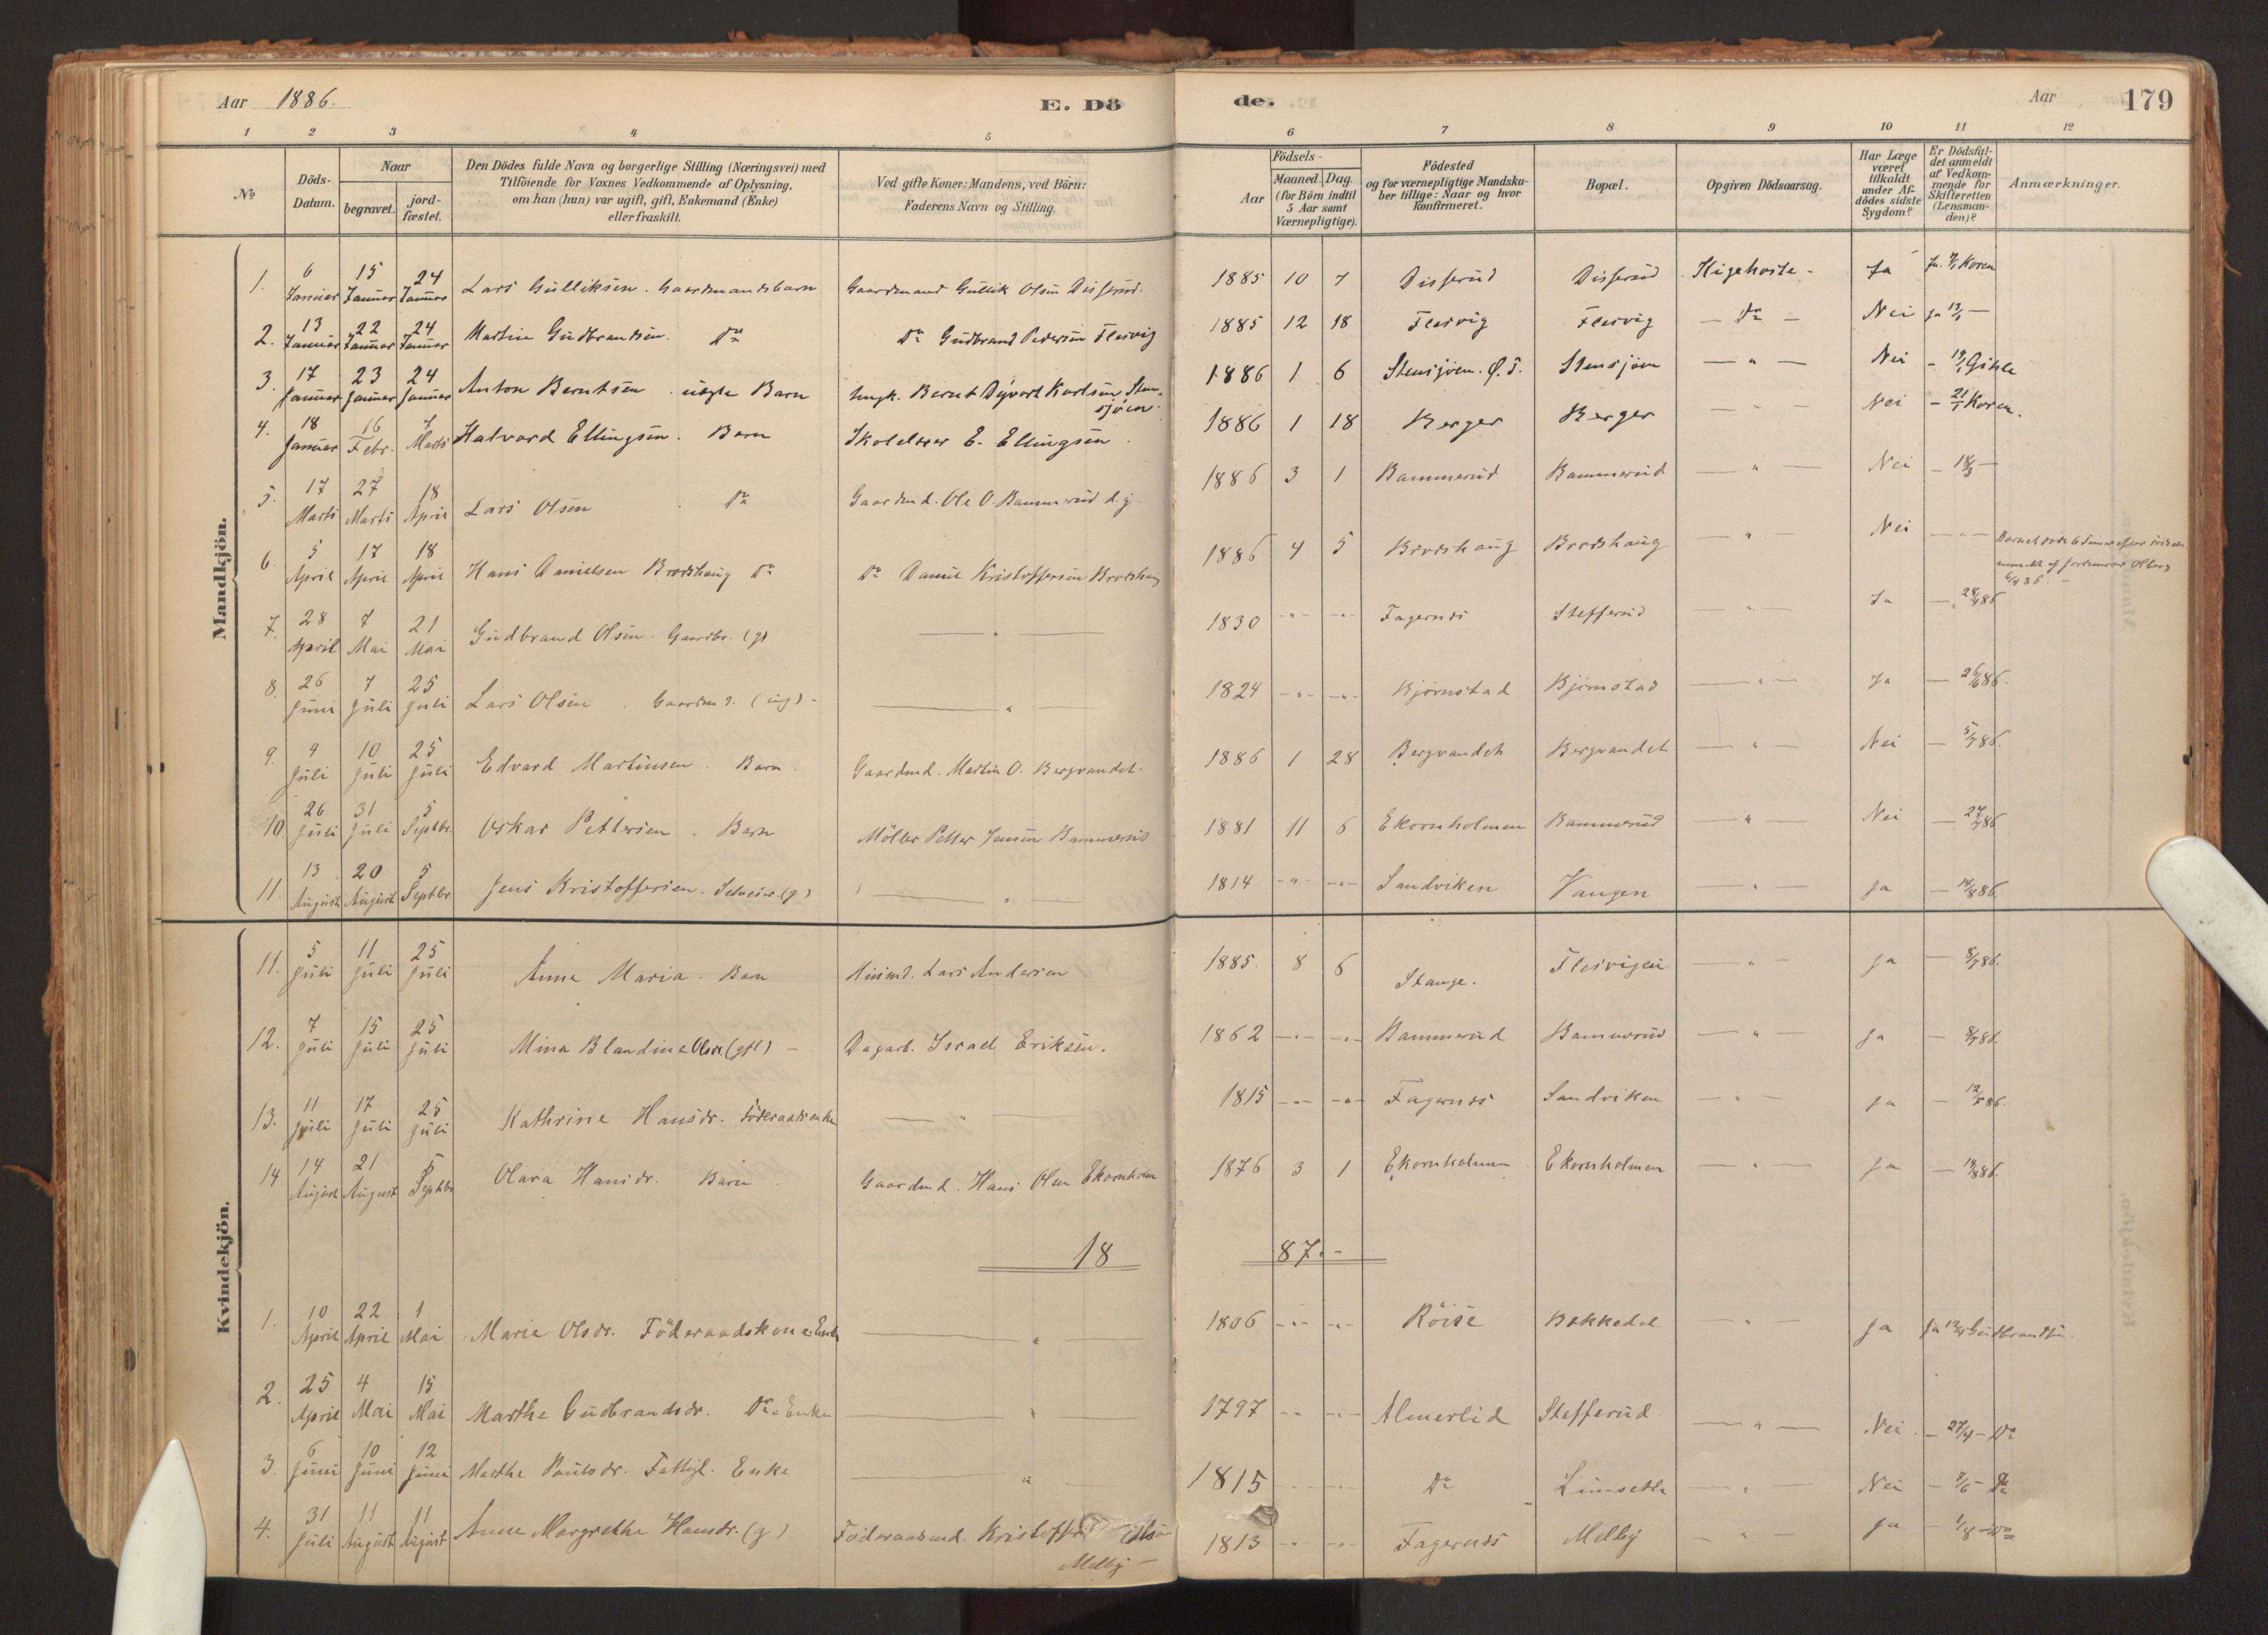 Aar 1886.
E. Dö
de.
Aar
179
1 2 3 4 5 6 7 8 9 10 11 12
No
Döds-Datum.
Naar
begravet.
jord-fæstet.
Den Dödes fulde Navn og borgerlige Stilling (Næringsvei) med
Tilföiende for Voxnes Vedkommende af Oplysning,
om han (hun) var ugift, gift, Enkemand (Enke)
eller fraskilt.
Ved gifte Koner: Mandens, ved Börn:
Faderens Navn og Stilling.
Födsels-
Aar
Maaned. Dag.
(for Börn indtil
5 Aar samt
Værnepligtige).
Födested
og for værnepligtige Mandska-
ber tillige: Naar og hvor
konfirmeret.
Bopæl.
Opgiven Dödsaarsag.
Har Læge
været
tilkaldt
under Af-
dödes sidste
Sygdom?
Er Dödsfal-
det anmeldt
af Vedkom-
mende for
Skifteretten
(Lensman-
den)?
Anmærkninger.
Mandkjön.
1. 6 Januar 15 Januar 24 Januar Lars Gulliksen. Gaardmandsbarn Gaardmand Gullik Olsen Disserud. 1885 10 7 Disserud Disserud Kighoste - Ja Ja. 7/1 Koren
2. 13 Januar 22 Januar 24 Januar Martin Gudbrandsen. Do Do Gudbrand Pedersen Flesvig 1885 12 18 Flesvig Flesvig — Do — Nei Ja 13/1 —
3. 17 Januar 23 Januar 24 Januar Anton Berntsen. uægte Barn Ungk. Bernt Dyvart Karlsen Sten-
sjöen. 1886 1 6 Stensjöen. Ö. T. Stensjöen — " — Nei - 19/1 Gihle
4. 18 Januar 16 Febr. 7 Marts Halvard Ellingsen. Barn Skolelærer E. Ellingsen. 1886 1 18 Berger Berger — " — Nei - 21/1 Koren.
5. 17 Marts 27 Marts 18 April Lars Olsen Do Gaardmd. Ole O. Bammerud d. y. 1886 3 1 Bammerud Bammerud — " — Nei - 18/3 —
6. 5 April 17 April 18 April Hans Danielsen Brodshaug Do Do Daniel Kristoffersen Brodshaug 1886 4 5 Brodshaug Brodshaug — " — Nei — " —
6/4 86. —
7. 28 April 7 Mai 21 Mai Gudbrand Olsen. Gaardbr. (g) — " — 1830 - " - - " - Fagernes Stefferud — " — Ja — 28/4 86
8. 26 Juni 7 Juli 25 Juli Lars Olsen. Gaardmd. (ug) - — " — 1824 - " - - " - Bjørnstad Bjørnstad — " — Ja — 26/6 86.
9. 4 Juli 10 Juli 25 Juli Edvard Martinsen. Barn. Gaardmd. Martin O. Bergvandet. 1886 1 28 Bergvandet Bergvandet — " — Nei — 5/7 86.
10. 26 Juli 31 Juli 5 Septbr. Oskar Pettersen. Barn Möller Petter Jensen Bammerud 1881 11 6 Ekornholmen Bammerud — " — Nei — 27/7 86
11. 13 August 20 August 5 Septbr. Jens Kristoffersen. Selveier. (g) — " — 1814 - " - - " - Sandviken Vangen — " — Ja — 14/8 86.
Kvindekjön.
11. 5 Juli 11 Juli 25 Juli Anne Maria. Barn Husmd. Lars Andersen 1885. 8 6 Stange. Flesvigen — " — Ja — 8/7 86.
12. 7 Juli 15 Juli 25 Juli Mina Blandine Olsen (gft) - Dagarb. Israel Eriksen. 1862 - " - - " - Bammerud Bammerud — " — Ja — 8/7 86.
13. 11 Juli 17 Juli 25 Juli Kathrine Hansdr. Föderaadsenke — " — 1815 - " - - " - Fagernes Sandviken — " — Ja — 12/7 86.
14 14 August 21 August 5 Septbr Olava Hansdr. Barn Gaardmd. Hans Olsen Ekornholm 1876 3 1 Ekornholmen Ekornholmen — " — Ja — 19/8 86.
18
87. -
1. 10 April 22 April 1 Mai Marie Olsdr. Föderaadskone Enke — " — 1806 - " - - " - Röise Bakkedal — " — Ja Ja 12/4 Gudbrandsen.
2. 25 April 4 Mai 15 Mai Marthe Gudbrandsdr. Do - Enke — " — 1797 - " - - " - Almerlid Stefferud — " — Nei. - 27/4 - Do
3. 6 Juni 10 Juni 12 Juni Marthe Paulsdr. Fattigl. Enke — " — 1815 - " - - " - Do Limsetle — " — Nei - 7/6 - Do
4. 31 Juli 11 August 11 August Anne Margrethe Hansdr. (g) Föderaadsmd. Kristoffer Olsen
Melby - 1813 - " - - " - Fagernes Melby — " — Ja - 1/8 - Do